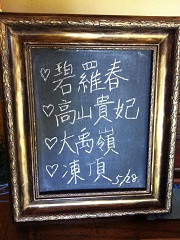 ♡碧羅春
♡高山貴妃
♡大禹嶺
♡凍頂 5/28